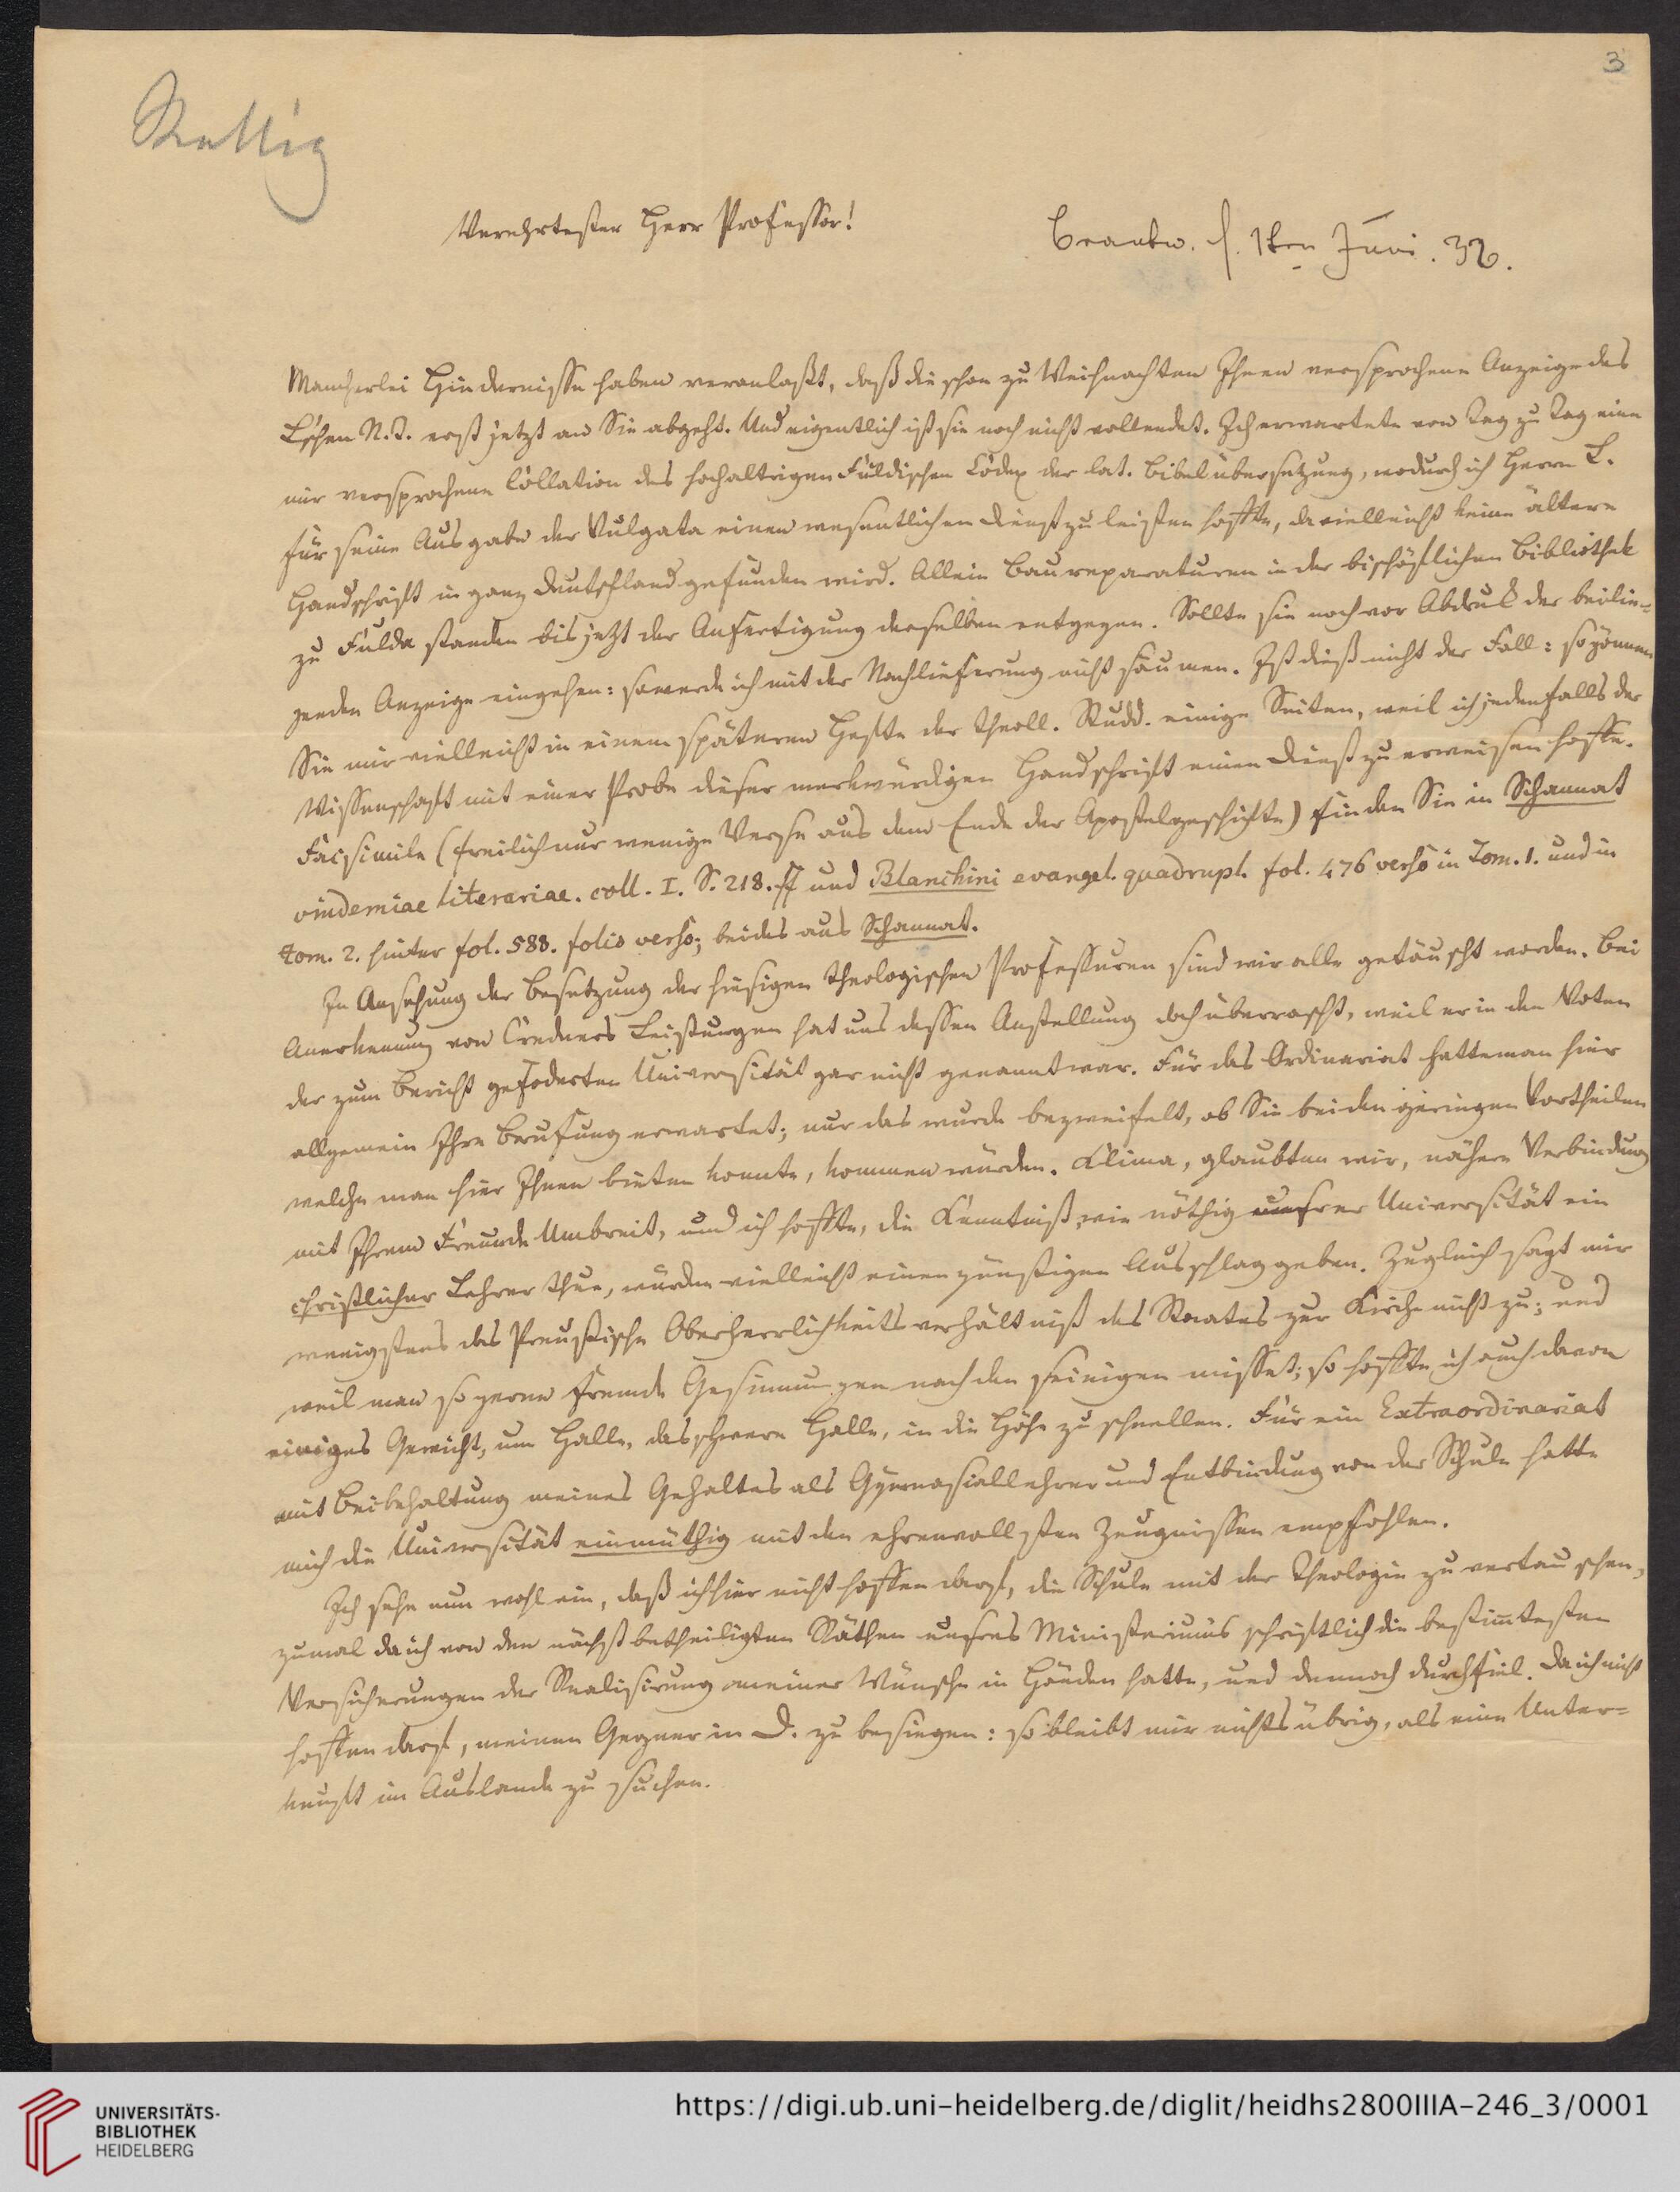 3
Rettig
Verehrtester Herr Professor!
beantw. d. 1ten Juni. 32.
Mancherlei Hindernisse haben veranlaßt, daß die schon zu Weihnachten Ihnen versprochene Anzeige des
L'schen N. T. erst jetzt an Sie abgeht. Und eigentlich ist sie noch nicht vollendet. Ich erwartete von Tag zu Tag eine
mir versprochene Collation des hochaltrigen Fuldischen Codex der lat. Bibelübersetzung, wodurch ich Herrn L.
für seine Ausgabe der Vulgata einen wesentlichen Dienst zu leisten hoffte, da vielleicht keine ältere
Handschrift in ganz Deutschland gefunden wird. Allein Baureparaturen in der bischöflichen Bibliothek
zu Fulda standen bis jetzt der Anfertigung derselben entgegen. Sollte sie noch vor Abdruck der beilie-
genden Anzeige eingehen: so werde ich mit der Nachlieferung nicht säumen. Ist dieß nicht der Fall: so gönnen
Sie mir vielleicht in einem späteren Hefte der theoll. Studd. einige Seiten, weil ich jedenfalls der
Wissenschaft mit einer Probe dieser merkwürdigen Handschrift einen Dienst zu erweisen hoffe.
Facsimile (freilich nur wenige Verse aus dem Ende der Apostelgeschichte) finden Sie in Schannat
vindemiae literariae. coll. I. S. 218. ff und Blanchini evangel. quadrupl. fol. 476 verso in Tom. 1. und in
tom. 2. hinter fol. 588. folio verso; beides aus Schannat.
In Ansehung der Besetzung der hiesigen theologischen Professuren sind wir alle getäuscht worden. Bei
Anerkennung von Credners Leistungen hat uns dessen Anstellung doch überrascht, weil er in den Voten
der zum Bericht gefoderten Universität gar nicht genannt war. Für das Ordinariat hatte man hier
allgemein Ihre Berufung erwartet; nur das wurde bezweifelt, ob Sie bei den geringen Vortheilen
welche man hier Ihnen bieten konnte, kommen würden. Klima, glaubten wir, nähere Verbindung
mit Ihrem Freunde Umbreit, und ich hoffte, die Kenntniß, wie nöthig unsrer Universität ein
christlicher Lehrer thue, würden vielleicht einen günstigen Ausschlag geben. Zugleich sagt mir
wenigstens das Preußische Oberherrlichkeitsverhältniß des Staates zur Kirche nicht zu; und
weil man so gerne fremde Gesinnungen nach den seinigen misset; so hoffte ich auch davon
einiges Gewicht, um Halle, das schwere Halle, in die Höhe zu schnellen. Für ein Extraordinariat
mit Beibehaltung meines Gehaltes als Gymnasiallehrer und Entbindung von der Schule hatte
mich die Universität einmüthig mit den ehrenvollsten Zeugnissen empfohlen.
Ich sehe nun wohl ein, daß ich hier nicht hoffen darf, die Schule mit der Theologie zu vertauschen,
zumal da ich von den nächst betheiligten Räthen unsres Ministeriums schriftlich die bestimtesten
Versicherungen der Realisirung meiner Wünsche in Händen hatte, und dennoch durchfiel. Da ich nicht
hoffen darf, meinen Gegner in D. zu besiegen: so bleibt mir nichts übrig, als eine Unter-
kunft im Auslande zu suchen.
UNIVERSITÄTS-
BIBLIOTHEK
HEIDELBERG
https://digi.ub.uni-heidelberg.de/diglit/heidhs2800IIIA-246_3/0001